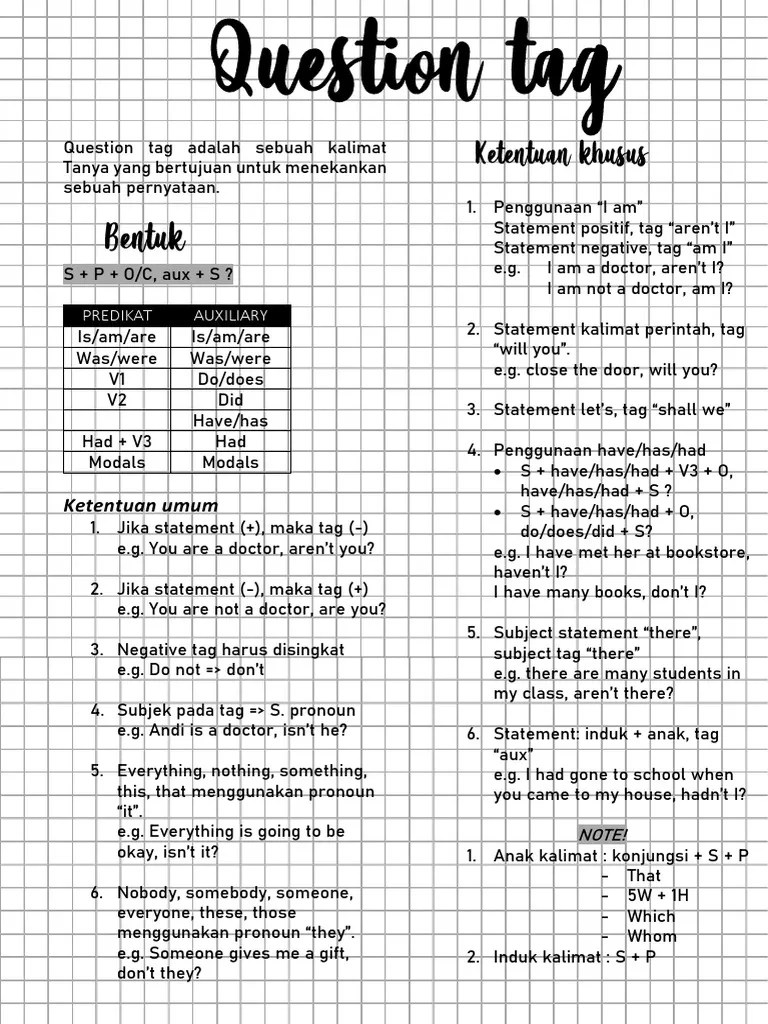 Question tag
Question tag adalah sebuah kalimat
Tanya yang bertujuan untuk menekankan
sebuah pernyataan.
Bentuk
S + P + O/C, aux + S ?
PREDIKAT AUXILIARY
Is/am/are Is/am/are
Was/were Was/were
V1 Do/does
V2 Did
Have/has
Had + V3 Had
Modals Modals
Ketentuan umum
1. Jika statement (+), maka tag (-)
e.g. You are a doctor, aren't you?
2. Jika statement (-), maka tag (+)
e.g. You are not a doctor, are you?
3. Negative tag harus disingkat
e.g. Do not => don't
4. Subjek pada tag => S. pronoun
e.g. Andi is a doctor, isn't he?
5. Everything, nothing, something,
this, that menggunakan pronoun
“it”.
e.g. Everything is going to be
okay, isn't it?
6. Nobody, somebody, someone,
everyone, these, those
menggunakan pronoun “they”.
e.g. Someone gives me a gift,
don't they?
Ketentuan khusus
1. Penggunaan “I am”
Statement positif, tag “aren't I”
Statement negative, tag “am I”
e.g. I am a doctor, aren't I?
I am not a doctor, am I?
2. Statement kalimat perintah, tag
“will you”.
e.g. close the door, will you?
3. Statement let's, tag “shall we”
4. Penggunaan have/has/had
• S + have/has/had + V3 + O,
have/has/had + S ?
• S + have/has/had + O,
do/does/did + S?
e.g. I have met her at bookstore,
haven't I?
I have many books, don't I?
5. Subject statement “there”,
subject tag “there”
e.g. there are many students in
my class, aren't there?
6. Statement: induk + anak, tag
“aux”
e.g. I had gone to school when
you came to my house, hadn't I?
NOTE!
1. Anak kalimat : konjungsi + S + P
- That
- 5W + 1H
- Which
- Whom
2. Induk kalimat : S + P